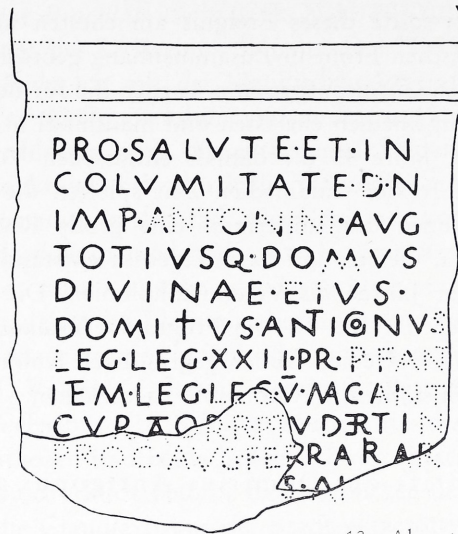 PRO·SALVTE·ET·IN
COLVMITATE·D·N
IMP·ANTONINI·AVG
TOTIVSQ·DOMVS
DIVINAE·EIVS·
DOMITVS·ANTIGONVS
LEG·LEG·XXII·PR·P·FAN
ITEM·LEG·LEG·V̄·MAC·ANT
PROC·AVG